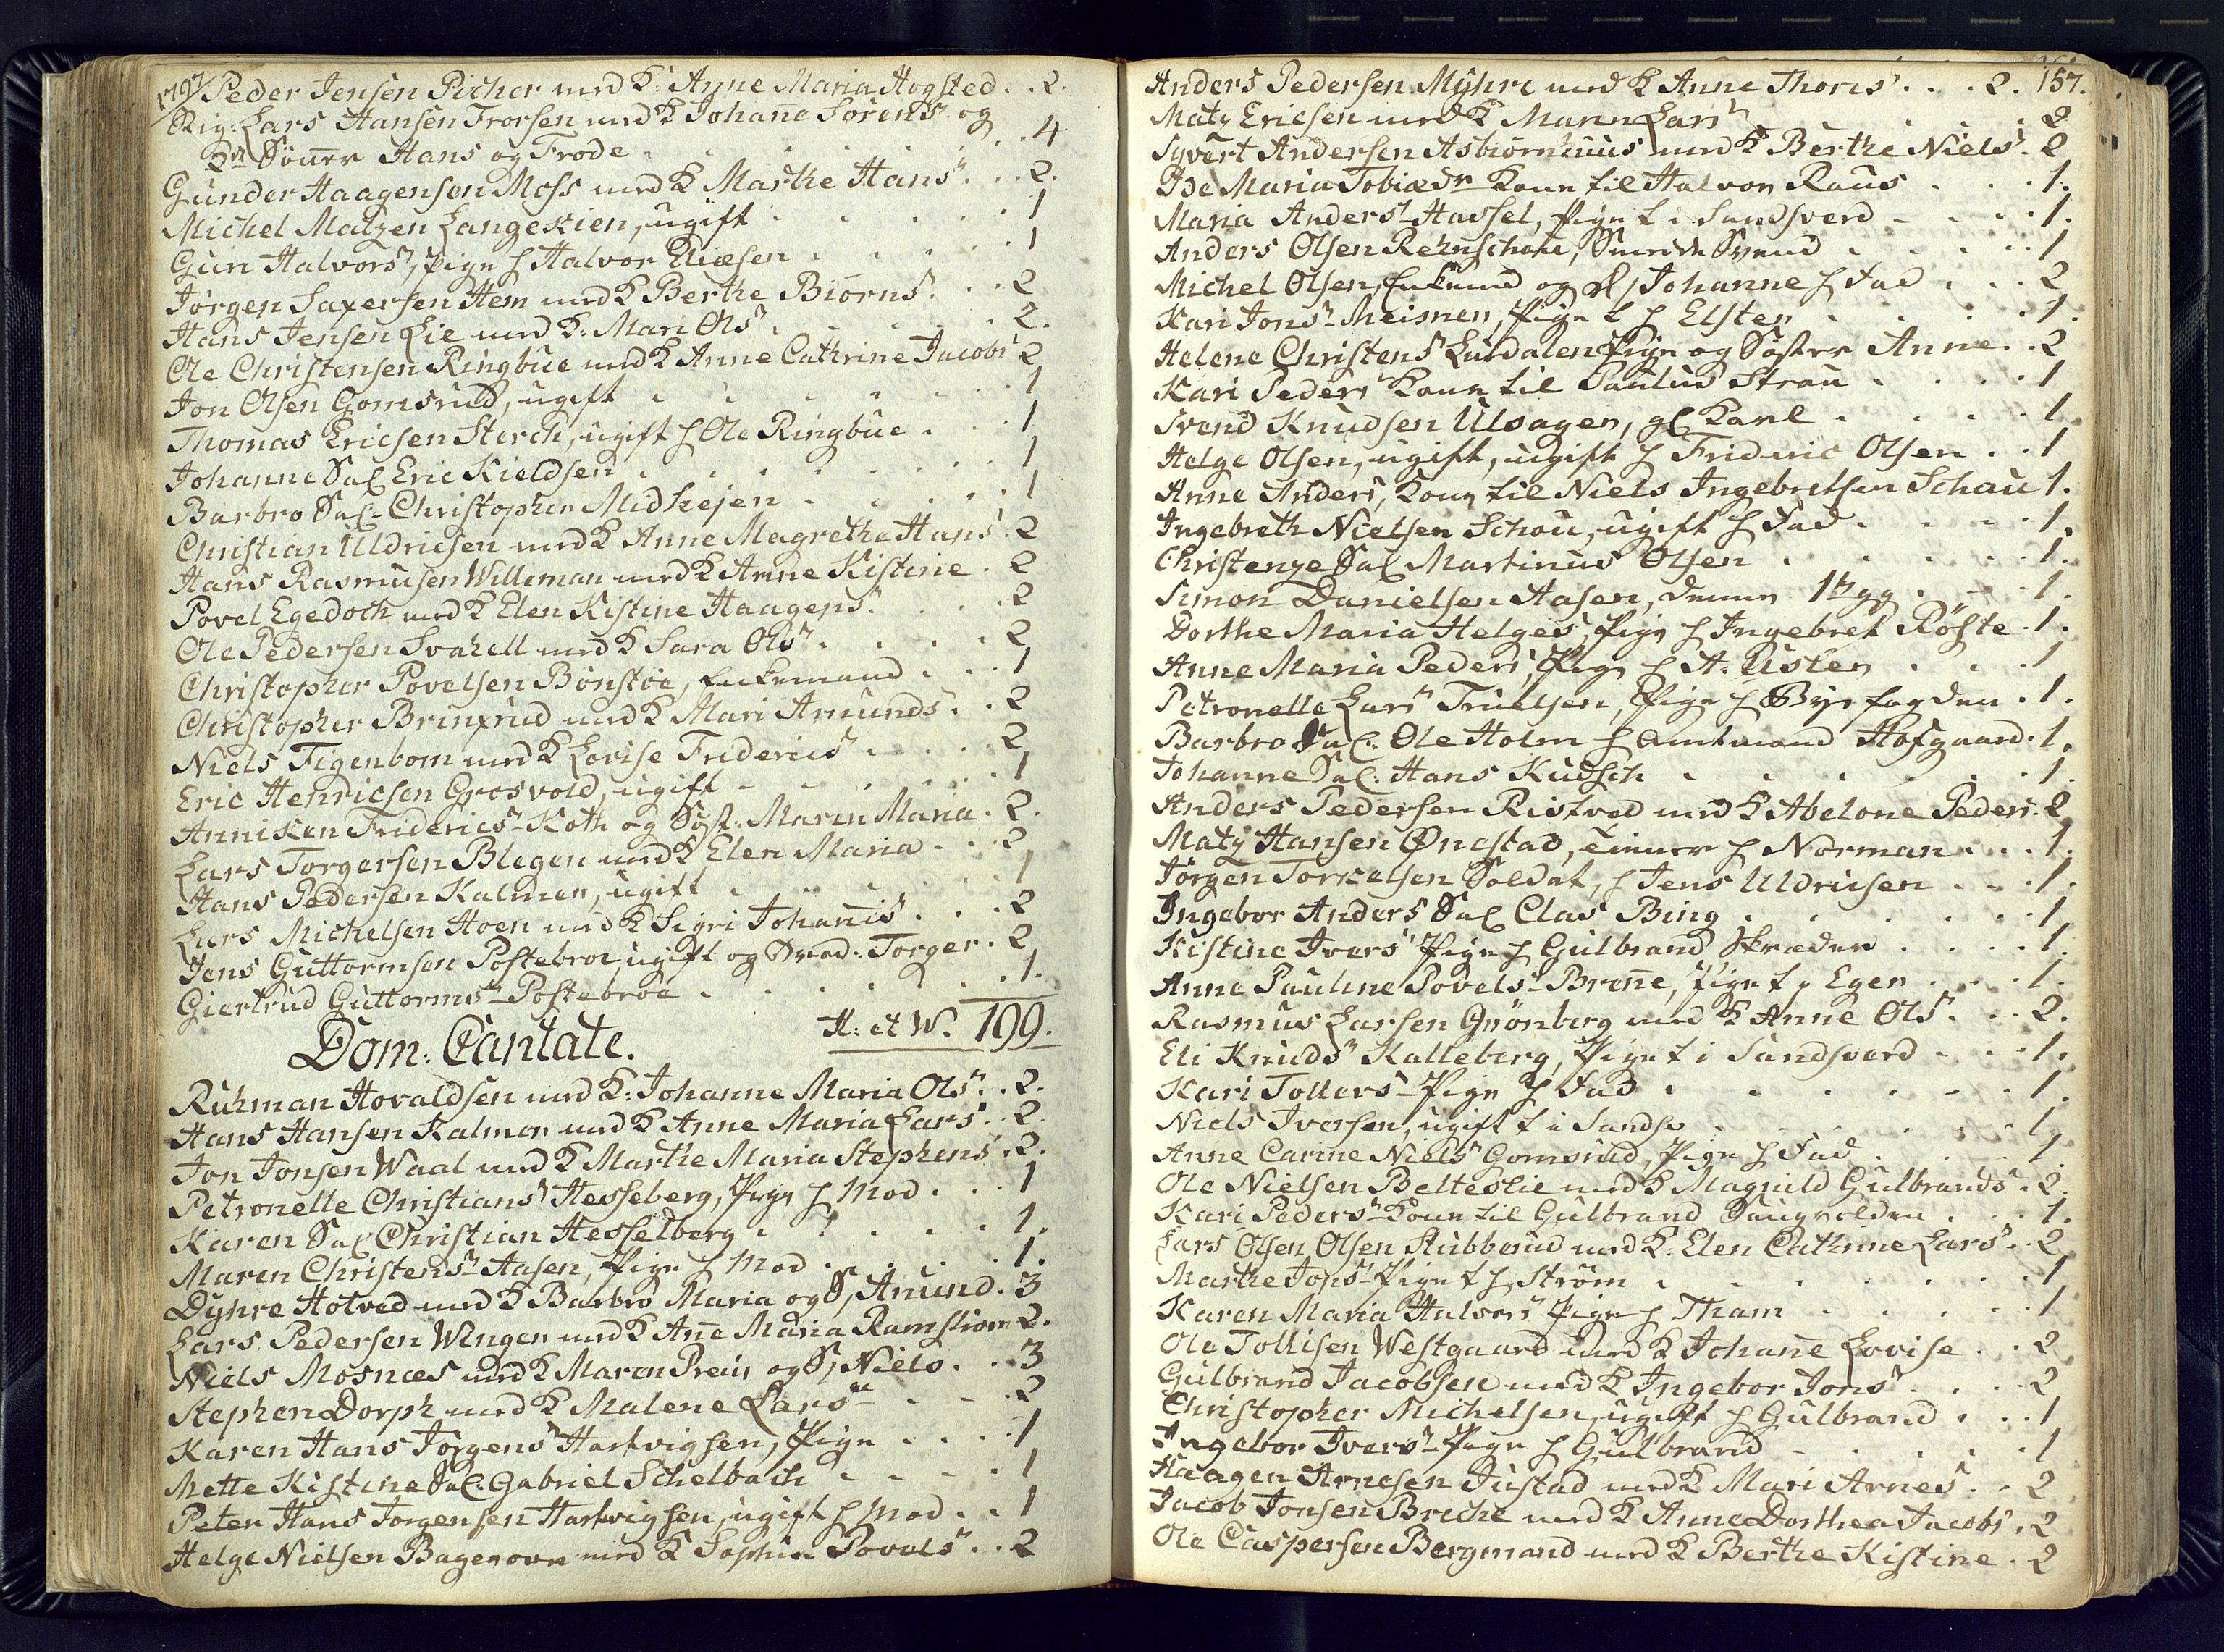 1797/
Peder Jensen Picher med K: Anne Maria Hogsted . . 2.
Rig: Lars Hansen Frorsen med K Johane Sørens og
2de Sönner Hans og Frode . . . . 4
Gunder Haagensen Moss med K Marthe Hans . . . 2.
Michel Matzen Langekien, ugift . . . . 1
Gun Halvors, Pige h Halvor Eliæsen . . . . 1
Jørgen Saxersen Hem med K Berthe Biørns . . . 2
Hans Jensen Lie med K: Mari Ols . . . . 2.
Ole Christensen Ringbue med K Anne Cathrine Jacobs 2
Jon Olsen Gomsrud, ugift . . . . 1
Thomas Ericsen Sterch, ugift h Ole Ringbue . . . 1
Johanne Sal Eric Kieldsen . . . . 1
Barbro Sal: Christopher Midhejen . . . . 1
Christian Uldricsen med K Anne Magrethe Hans . 2
Hans Rasmusen Willeman med K Anne Kistine . 2
Povel Egedoch med K Elen Kistine Haagens . . . 2
Ole Pedersen Svahell med K Sara Ols . . . . 2
Christopher Povelsen Bönstöe, Enkemand . . . 1
Christopher Brinxrud med K Mari Amunds . . 2
Niels Figenbom med K Lovise Friderics . . . . 2
Eric Henricsen Grosvold, ugift . . . . 1
Anniken Friderics Koth og Søst: Maren Maria . 2.
Lars Torgersen Blegen med K Elen Maria . . . 2
Hans Pedersen Kalmen, ugift . . . . 1
Lars Michelsen Hoen med K Sigri Johanis . . . 2
Jens Guttormsen Postebroe ugift og Brod: Torger . 2
Giertrud Guttorms Postebroe . . . . 1.
Dom: Cantate. H: et W. 199.
Ruhman Hovaldsen med K: Johanne Maria Ols . . 2.
Hans Hansen Kalman med K Anne Maria Lars . . 2.
Jon Jonsen Waal med K Marthe Maria Stephens . 2.
Petronelle Christians Hesseberg, Pige h Mod . . . 1
Karen Sal Christian Hesselberg . . . . 1.
Maren Christens Aasen, Pige h Mod . . . . 1.
Dyhre Hotved med K Barbro Maria og S, Amund . 3
Lars Pedersen Wingen med K Ane Maria Ramstiom 2.
Niels Mosnæs med K Maren Preus og S, Niels . . 3
Stephen Dorph med K Malene Lars . . . 2
Karen Hans Jørgens Hartvigsen, Pige . . . . 1
Mette Kistine Sal: Gabriel Schelbach . . . . 1
Peter Hans Jorgensen Hartvigsen, ugift h Mod . . 1
Helge Nielsen Bageovn med K Sophie Povels . . 2
157.
Anders Pedersen Myhre med K Anne Thores . . . 2.
Matz Ericsen med K Maren Lars . . . . 2
Syvert Andersen Asbiørnhuus med K Berthe Niels . 2
Ide Maria Tobiædr Kone til Halvor Raus . . . 1.
Maria Anders Hassel, Pige t i Sandsverd . . . 1.
Anders Olsen Rehnschou, Smede Svend . . . . 1
Michel Olsen, Enkemd og D, Johanne h Fad . . . 2
Kari Jons Meisnen, Pige t h Elster . . . . 1.
Helene Christens Lurdalen Pige og Søster Anne . . 2
Kari Peders Kone til Paulus Strau . . . . 1
Svend Knudsen Ulsagen, gl Karl . . . . 1.
Helge Olsen, ugift, ugift h Frideric Olsen . . 1
Anne Anders, Kone til Niels Ingebretsen Schau 1.
Ingebreth Nielsen Schou, ugift h Fad . . . . 1.
Christenze Sal Martinus Olsen . . . . 1.
Simon Danielsen Aasen, denne 1te gg . . . 1.
Dorthe Maria Helges, Pige h Ingebret Røste . 1.
Anne Maria Peders, Pige h A. Usler . . . 1
Petronelle Lars Truelsen, Pige h Byefogden . 1.
Barbro Sal: Ole Holm h Amtmand Hofgaard . 1.
Johanne Sal: Hans Kudsch . . . . 1.
Anders Pedersen Ristved med K Abelone Peders . 2
Matz Hansen Ønestad, tiener h Norman . . . 1.
Jørgen Torkelsen Soldat, h Jens Uldricsen . . . 1.
Ingebor Anders Sal Clas Bing . . . . 1
Kistine Ivers Pige h Gulbrand Skreder . . . . 1.
Anne Pauline Povels Brene, Pige t p Eger . . . 1.
Rasmus Larsen Grønberg med K Anne Ols . . . 2.
Eli Knuds Kalleberg, Pige t i Sandsverd . . . 1.
Kari Tollers Pige h Fad . . . . 1.
Niels Iversen, ugift t i Sandsv . . . . 1,
Anne Carine Niels Gomsrud, Pige h Fad . . . 1
Ole Nielsen Belteslie med K Magnild Gulbrands . 2.
Kari Peders Kone til Gulbrand Saugvolden . . . 1.
Lars Olsen Olsen Stubberud med K: Elen Cathrine Lars . 2
Marthe Jons Pige t h Strøm . . . . 1
Karen Maria Halvors Pige h Tham . . . . 1
Ole Tollisen Westgaard med K Johane Lovise . . 2
Gulbrand Jacobsen med K Ingebor Jons . . . . 2
Christopher Michelsen, ugift h Gulbrand . . . 1
Ingebor Ivers Pige h Gulbrand . . . . 1
Haagen Arnesen Justad med K Mari Arnes . . 2
Jacob Jonsen Breche med K Anne Dorthea Jacobs . 2
Ole Caspersen Bergmand med K Berthe Kistine . 2